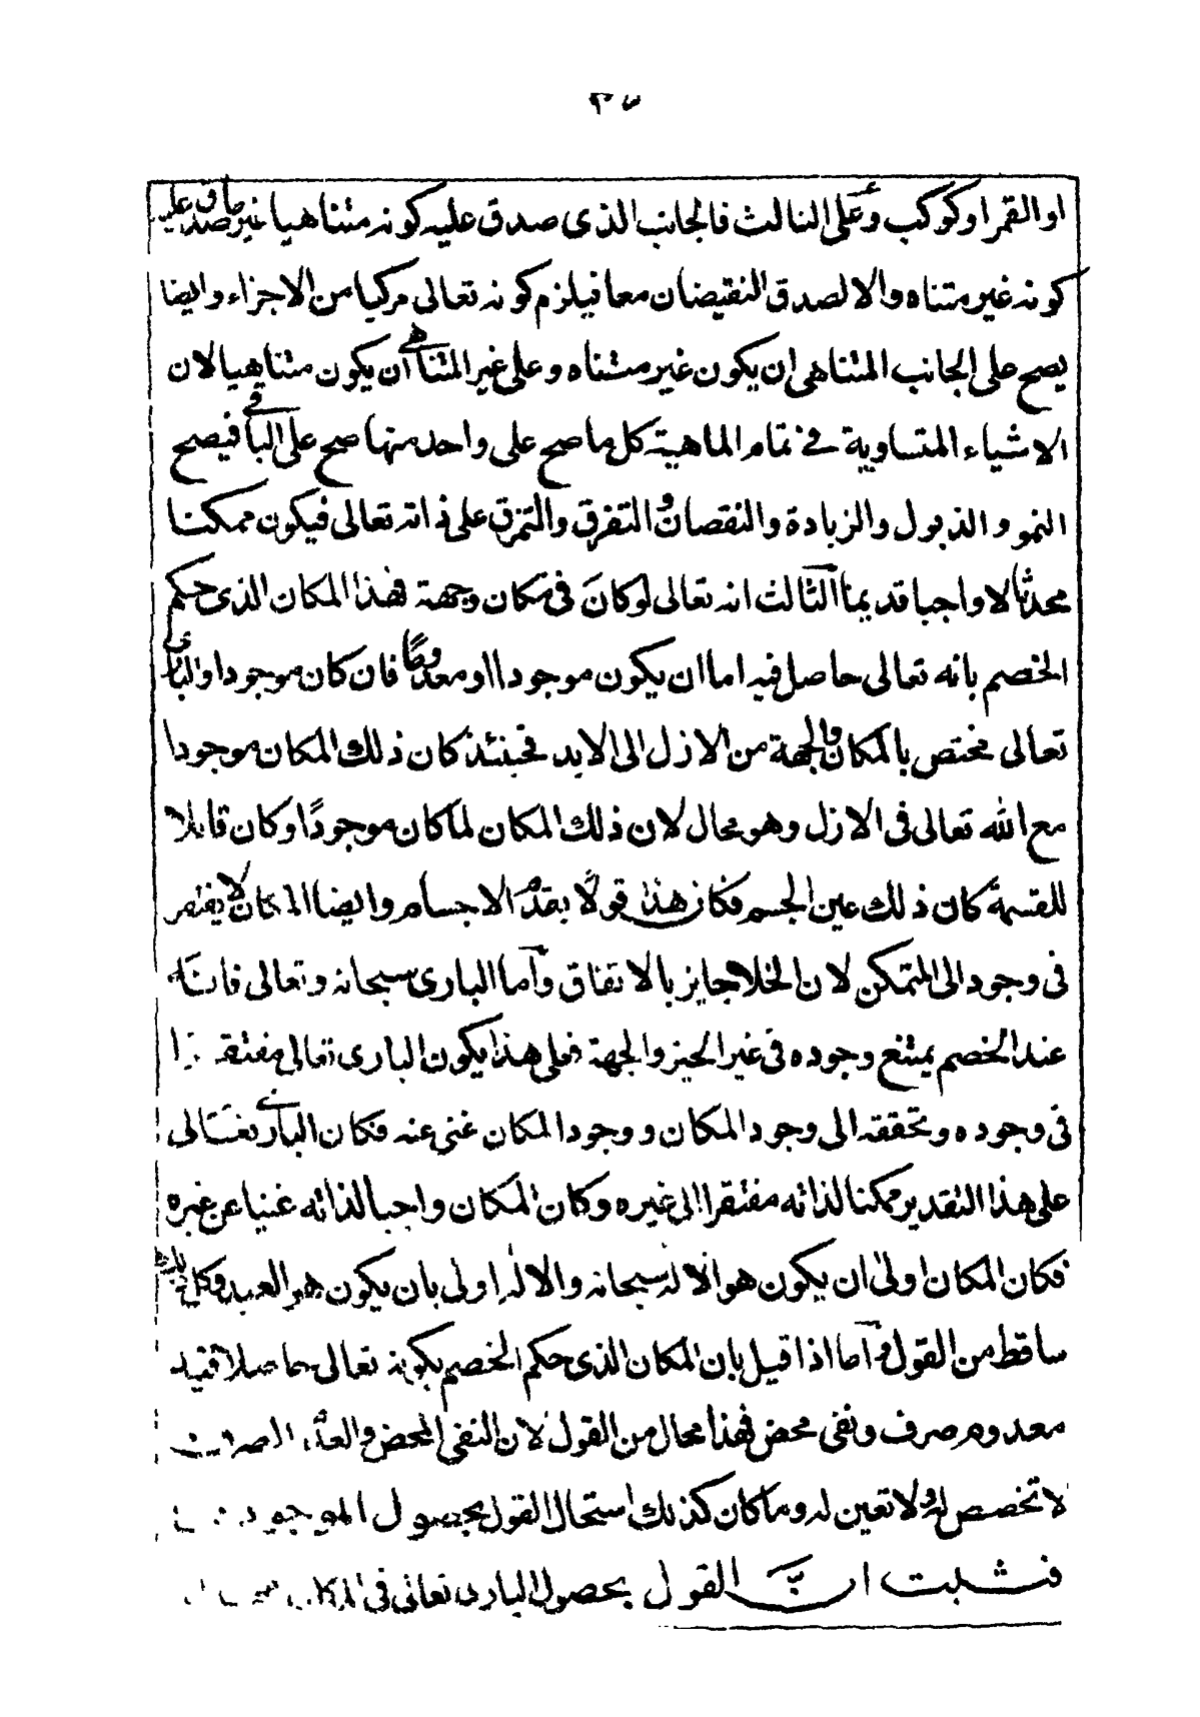 ٣٧
او القمر او كوكب وعلى الثالث فالجانب الذى صدق عليه كونه متناهيا غير صادق عليه
كونه غير متناه والا لصدق النقيضان معا فيلزم كونه تعالى مركبا من الاجزاء وايضا
يصح على الجانب المتناهى ان يكون غير متناه وعلى غير المتناهى ان يكون متناهيا لان
الاشياء المتساوية فى تمام الماهية كل ما صح على واحد منها صح على الباقى فيصح
النمو والذبول والزيادة والنقصان والتفرق والتمزق على ذاته تعالى فيكون ممكنا
محدثا لا واجبا قديما الثالث انه تعالى لو كان فى مكان وجهة فهذا المكان الذى حكم
الخصم بانه تعالى حاصل فيه اما ان يكون موجودا او معدوما فان كان موجودا والبارى
تعالى مختص بالمكان والجهة من الازل الى الابد فحينئذ كان ذلك المكان موجودا
مع الله تعالى فى الازل وهو محال لان ذلك المكان لما كان موجودًا وكان قابلا
للقسمة كان ذلك عين الجسم فكان هذا قولًا بقدم الاجسام وايضا المكان لا يفتقر
فى وجوده الى المتمكن لان الخلا جايز بالاتفاق وأما البارى سبحانه وتعالى فانه
عند الخصم يمتنع وجوده فى غير الحيز والجهة فعلى هذا يكون البارى تعالى مفتقرا
فى وجوده وتحققه الى وجود المكان ووجود المكان غنى عنه فكان البارى تعالى
على هذا التقدير ممكنا لذاته مفتقرا الى غيره وكان المكان واجبا لذاته غنيا عن غيره
فكان المكان اولى ان يكون هو الاله سبحانه والاله اولى بان يكون هو العبد وكل ذلك
ساقط من القول وأما اذا قيل بان المكان الذى حكم الخصم بكونه تعالى حاصلا فيه
معدوم صرف ونفى محض فهذا محال من القول لان النفى المحض والعدم الصرف
لا تخصص له ولا تعين له وما كان كذلك استحال القول بحصول الموجود
فثبت ان القول بحصول البارى تعالى فى المكان